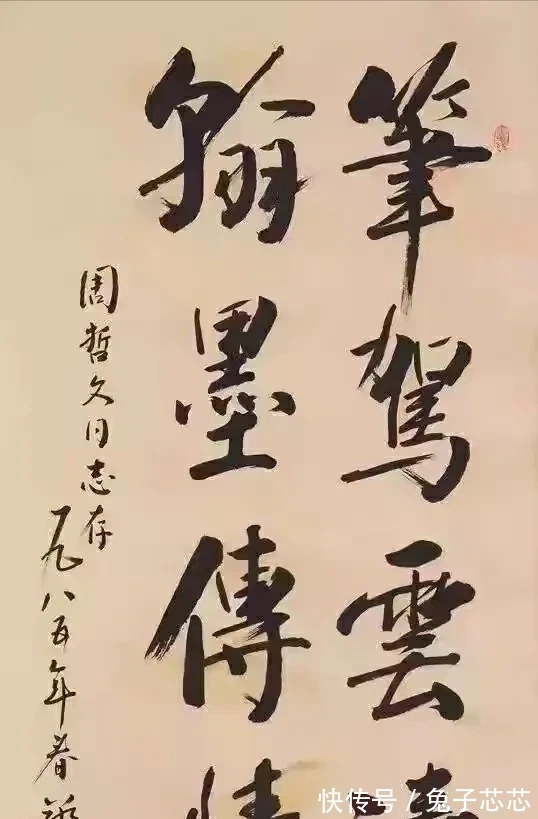 筆駕雲
翰墨傳情
周哲文同志存
一九八五年春
快传号 / 兔子芯芯